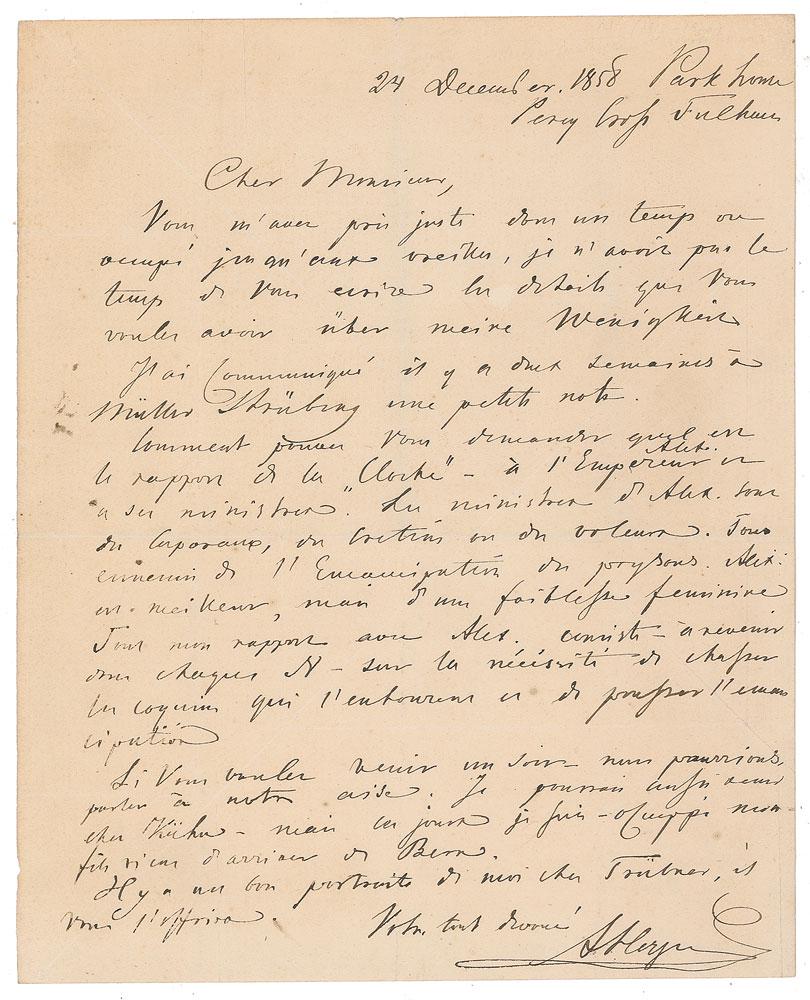 24 December. 1858 Park house
Percy Cross Fulham
Cher Monsieur,
Vous m'avez pris juste dans un temps ou
occupé jusqu'aux oreilles, je n'avais pas le
temps de Vous ecrire les details que Vous
voulez avoir über meine Wenigkeit
J'ai communiqué il y a deux semaines à
Müller Strübing une petite note.
Comment pouvez Vous demander quel est
le rapport de la "Cloche" - à l'Empereur Alex. et
a ses ministres". Les ministres d'Alex. sont
des Caporaux, des cretins ou des voleurs. Tous
ennemis de l'Emancipation des paysans. Alex.
est meilleur, mais d'une faiblesse feminine
Tout mon rapport avec Alex. consiste - à revenir
dans chaque N - sur la nécéssité de chasser
les coquins qui l'entourent et de pousser l'eman
cipation
Si Vous voulez venir un soir - nous pourrions
parler à notre aise. Je pourrais aussi venir
chez Kühn - mais ces jours je suis - ocuppé mon
fils vient d'arriver de Bern.
Il y a un bon portrait de moi chez Trübner, il
vous l'offrira.
Votre tout devoué
A Herzen